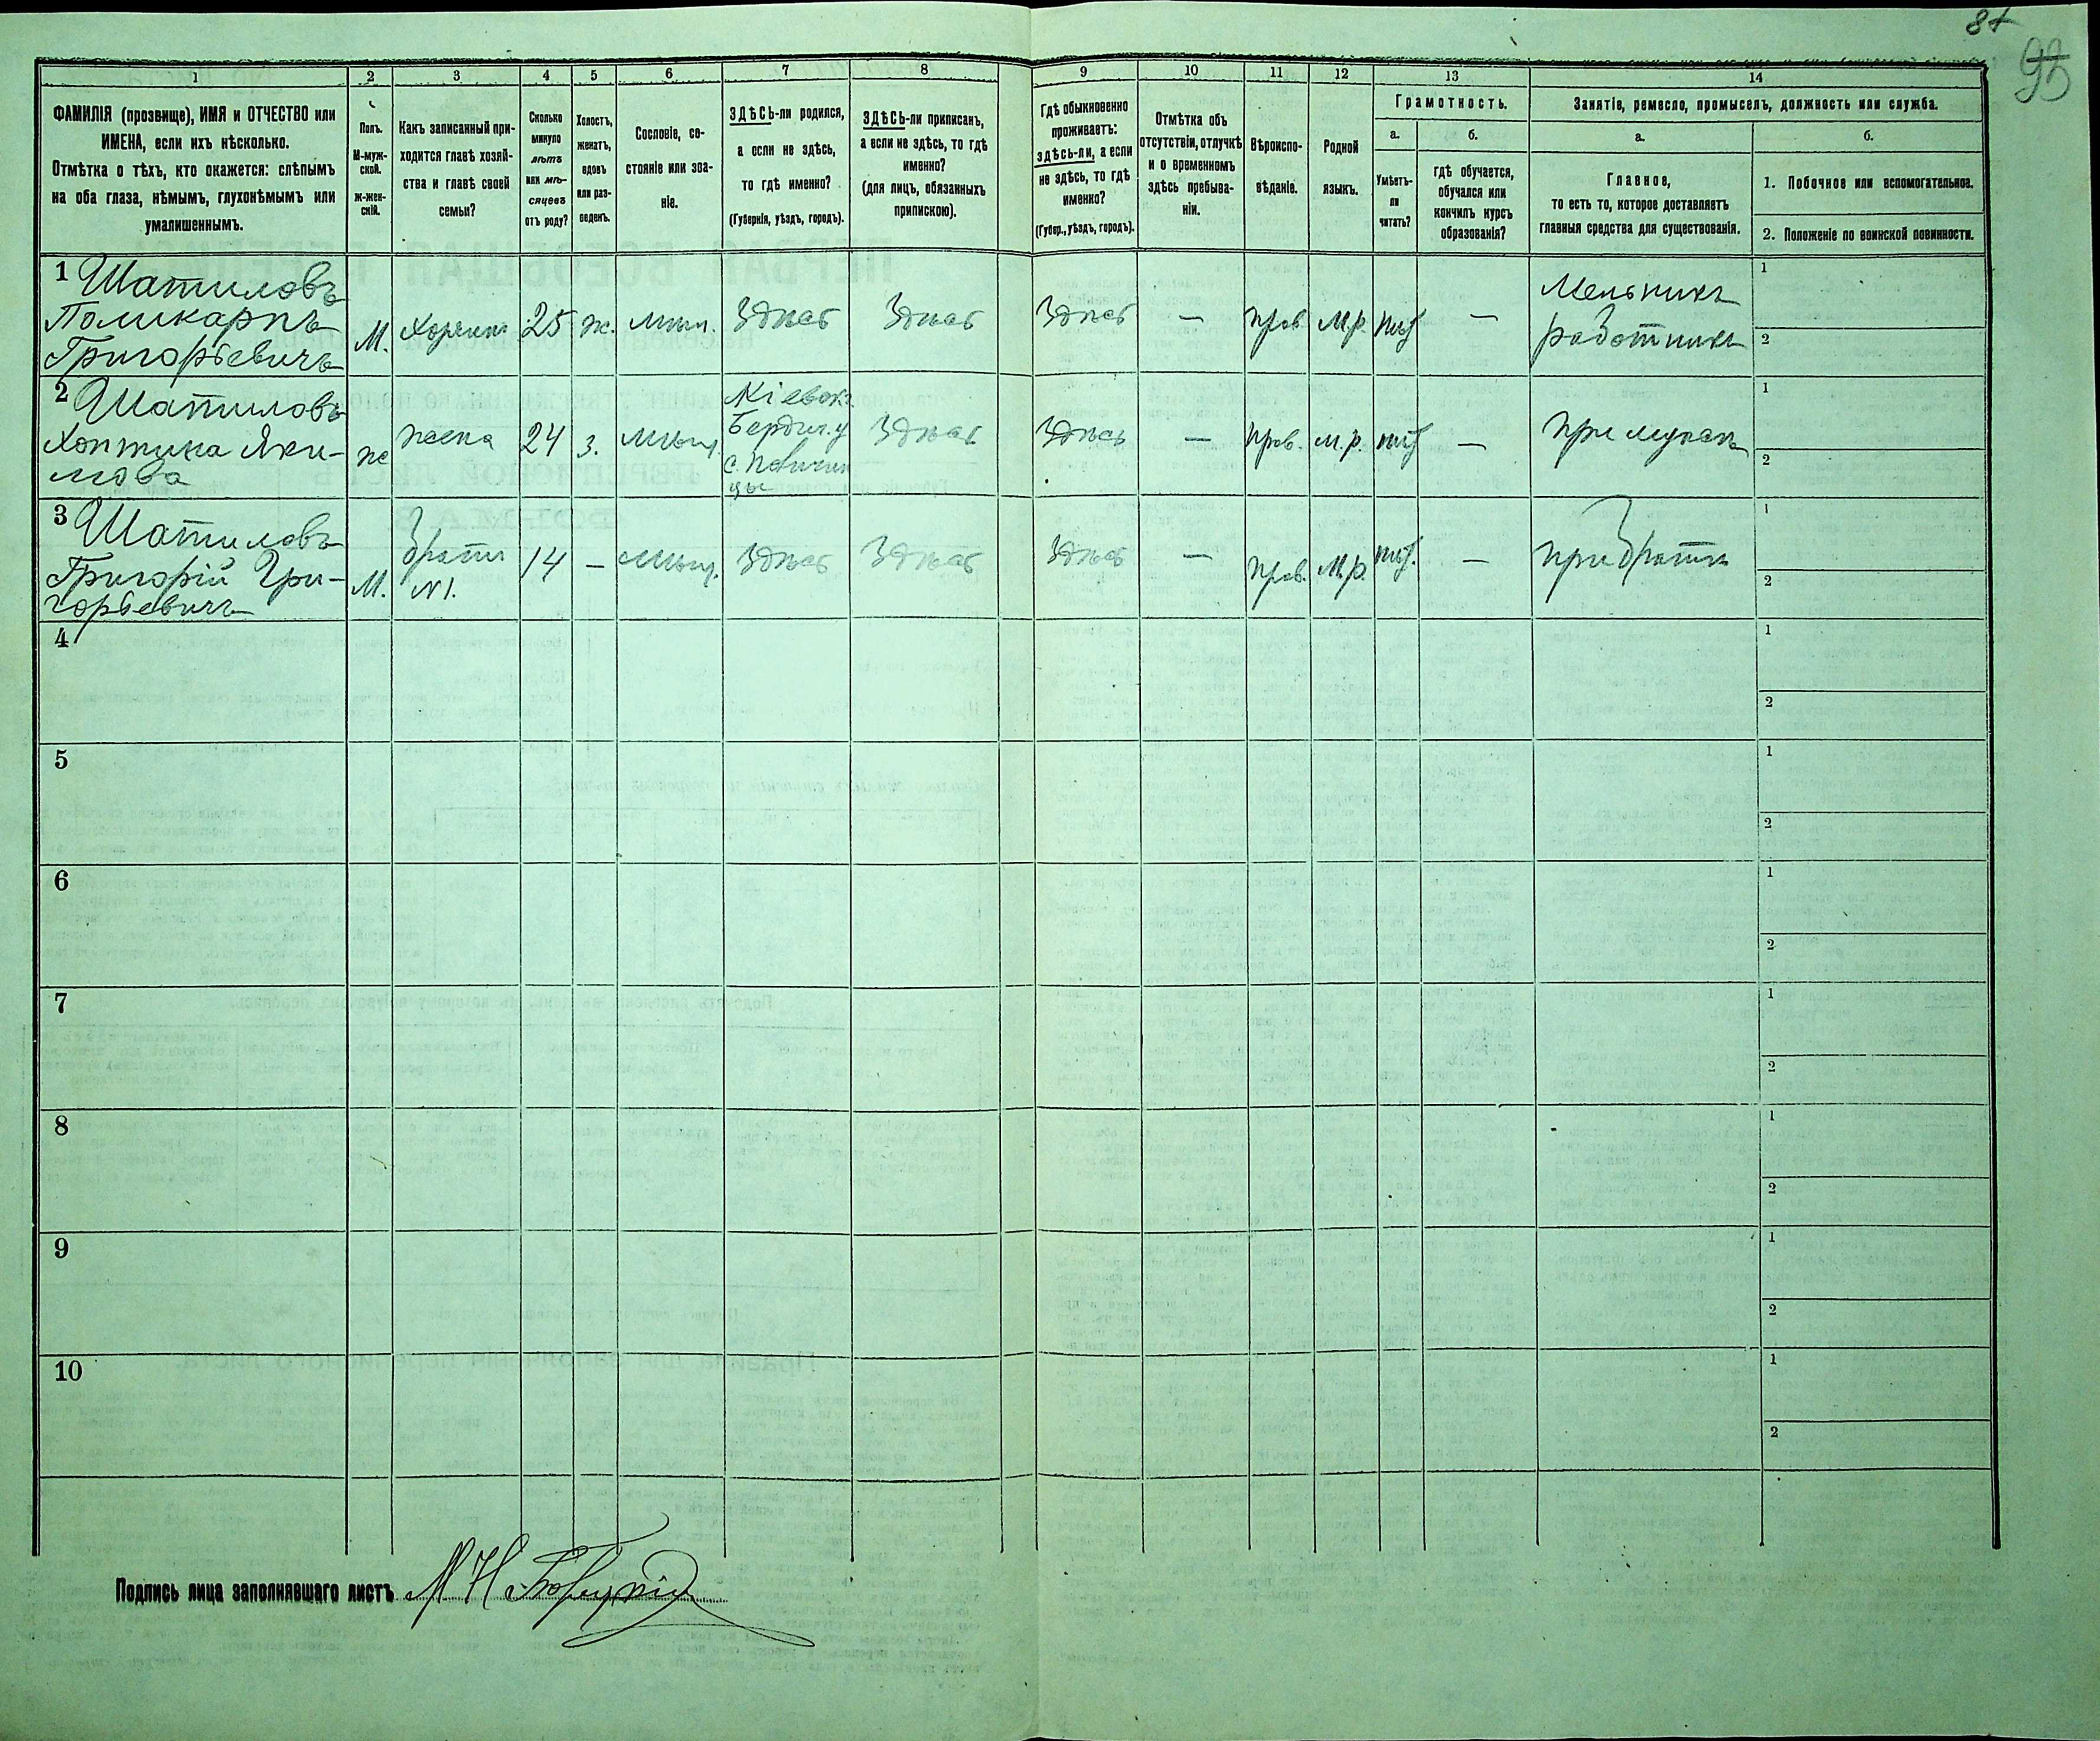 95
1
2
3
4
5
6
7
8
9
10
11
12
13
14
ФАМИЛІЯ (прозвище), ИМЯ и ОТЧЕСТВО или
ИМЕНА, если ихъ нѣсколько.
Отмѣтка о тѣхъ, кто окажется: слѣпымъ
на оба глаза, нѣмымъ, глухонѣмымъ или
умалишеннымъ.
Полъ.
М-муж-
ской.
ж-жен-
скій.
Какъ записанный при-
ходится главѣ хозяй-
ства и главѣ своей
семьи?
Сколько
минуло
лѣтъ
или мѣ-
сяцевъ
отъ роду?
Холостъ,
женатъ,
вдовъ
или раз-
веденъ.
Сословіе, со-
стояніе или зва-
ніе.
ЗДѢСЬ-ли родился,
а если не здѣсь,
то гдѣ именно?
(Губернія, уѣздъ, городъ).
ЗДѢСЬ-ли приписанъ,
а если не здѣсь, то гдѣ
именно?
(для лицъ, обязанныхъ
припискою).
Гдѣ обыкновенно
проживаетъ:
здѣсь-ли, а если
не здѣсь, то гдѣ
именно?
(Губер., уѣздъ, городъ).
Отмѣтка объ
отсутствіи, отлучкѣ
и о временномъ
здѣсь пребыва-
ніи.
Вѣроиспо-
вѣданіе.
Родной
языкъ.
Грамотность.
а.
б.
Умѣетъ-
ли
читать?
гдѣ обучается,
обучался или
кончилъ курсъ
образованія?
Занятіе, ремесло, промыселъ, должность или служба.
а.
б.
Главное,
то есть то, которое доставляетъ
главныя средства для существованія.
1. Побочное или вспомогательное.
2. Положеніе по воинской повинности.
1 Шатиловъ
Поликарпъ
Григорьевичъ
М.
25
ж.
Здѣсь
Здѣсь
Здѣсь
—
прав.
М.р.
—
Мельникъ
работникъ
1
2
2 Шатиловъ
ж
жена
24
з.
Мѣщ.
Кіевск.
Бердич. у
Здѣсь
Здѣсь
—
прав.
м.р.
—
при мужѣ
1
2
3 Шатиловъ
Григорій Гри-
горьевичъ
М.
братъ
N1.
14
—
Мѣщ.
Здѣсь
Здѣсь
Здѣсь
—
прав.
М.р.
—
при братѣ
1
2
4
1
2
5
1
2
6
1
2
7
1
2
8
1
2
9
1
2
10
1
2
Подпись лица заполнявшаго листъ